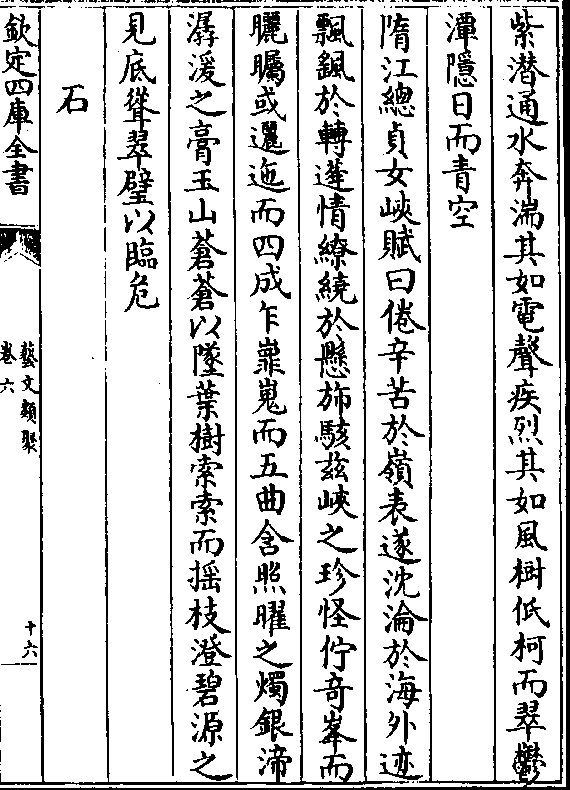 紫潜通水奔湍其如電聲疾烈其如風樹低柯而翠鬱
潭隱日而青空
隋江總貞女峽賦曰倦辛苦於嶺表遂沈淪於海外迹
飄䬙於轉蓬情繚繞於懸斾駭兹峽之珍怪佇竒峯而
矖矚或邐迤而四成乍嶵嵬而五曲含照曜之燭銀渧
潺湲之膏玉山蒼蒼以墜葉樹索索而摇枝澄碧源之
見底聳翠壁以臨危
石
欽定四庫全書
藝文類聚
卷六
十六